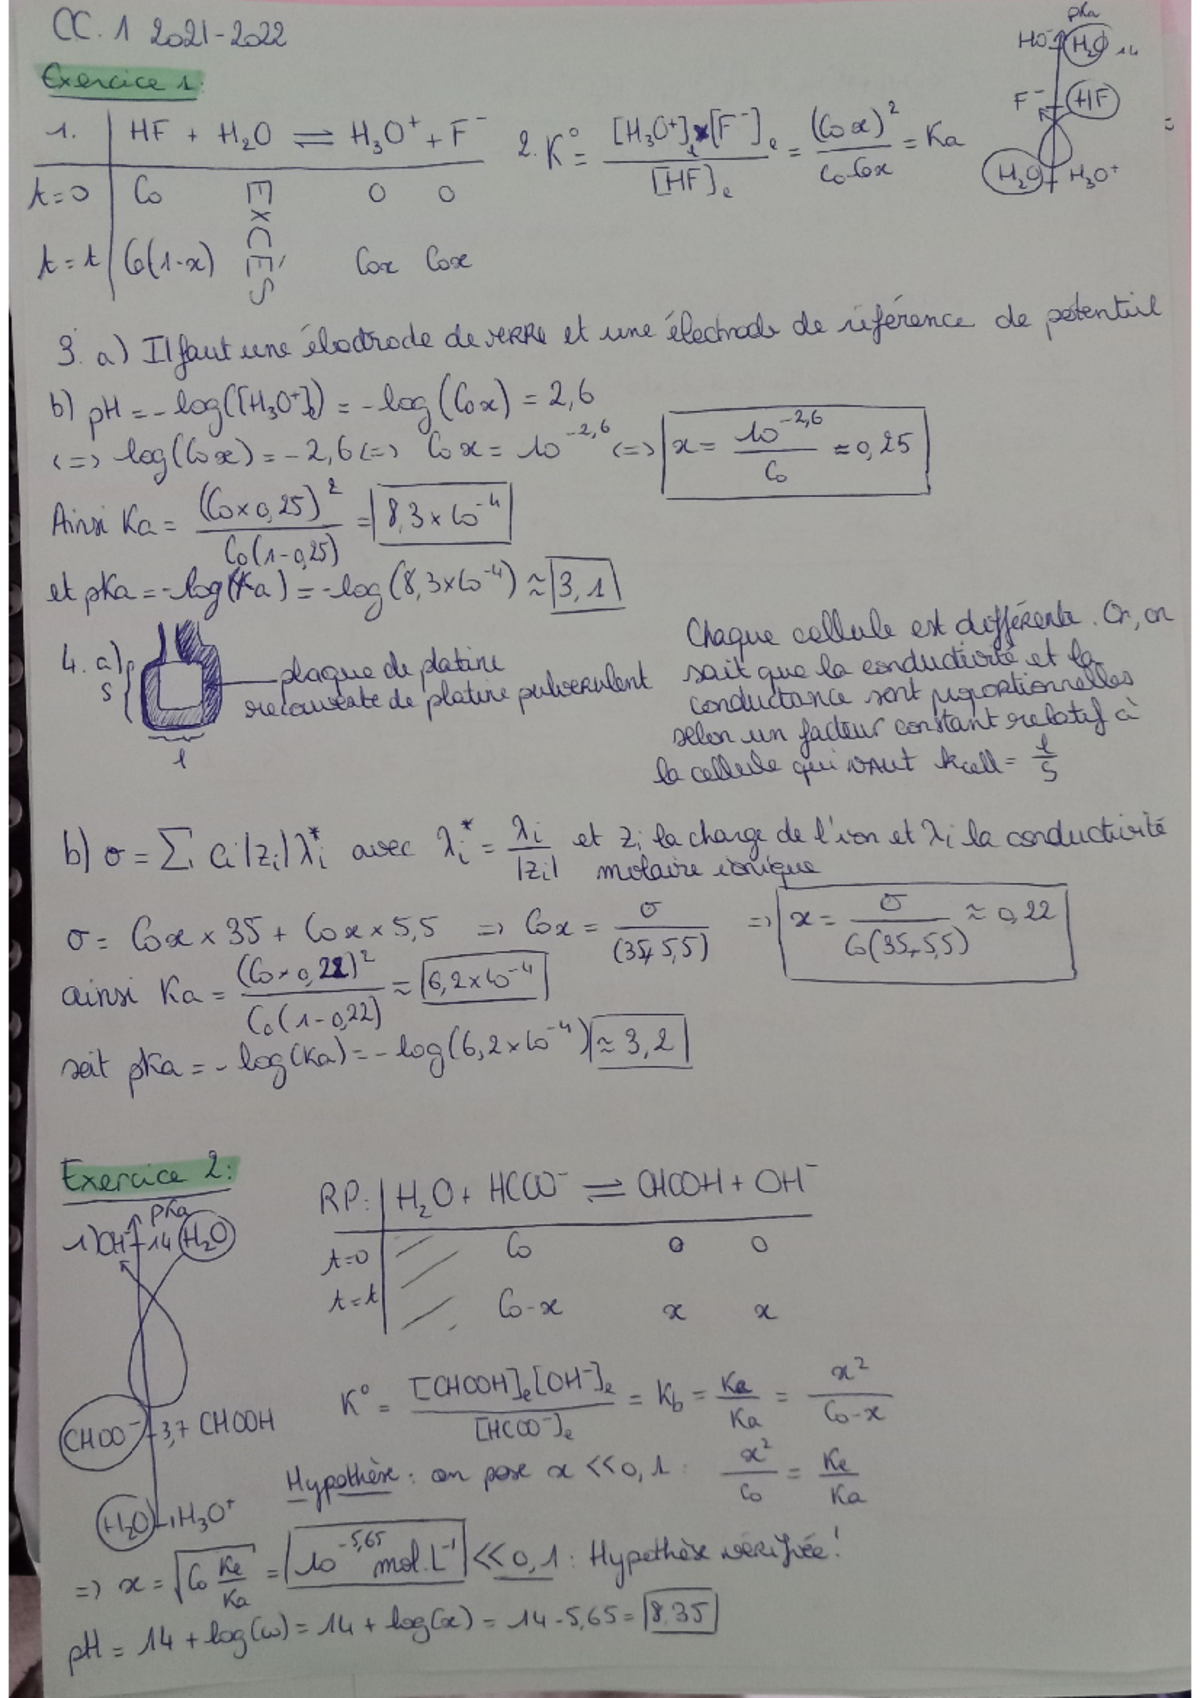 CC. 1 2021-2022
Exercice 1:
pka
HO⁻ H₂O 14
F⁻ HF
H₂O H₃O⁺
1. HF + H₂O ⇌ H₃O⁺ + F⁻
t=0 C₀ EXCÈS 0 0
t=t C₀(1-x) C₀x C₀x
2. K° = [H₃O⁺]ₑ×[F⁻]ₑ / [HF]ₑ = (C₀x)² / C₀-C₀x = Ka
3. a) Il faut une électrode de verre et une électrode de référence de potentiel
b) pH = -log([H₃O⁺]ₑ) = -log(C₀x) = 2,6
<=> log(C₀x) = -2,6 <=> C₀x = 10^-2,6 <=> x = 10^-2,6 / C₀ ≈ 0,25
Ainsi Ka = (C₀×0,25)² / C₀(1-0,25) = 8,3×10⁻⁴
et pKa = -log(Ka) = -log(8,3×10⁻⁴) ≈ 3,1
4. a) S
plaque de platine
recouverte de platine pulvérulent
l
Chaque cellule est différente. Or, on
sait que la conductivité et la
conductance sont proportionnelles
selon un facteur constant relatif à
la cellule qui vaut kcell = l/S
b) σ = Σᵢ Cᵢ|zᵢ|λᵢ* avec λᵢ* = λᵢ/|zᵢ| et zᵢ la charge de l'ion et λᵢ la conductivité
molaire ionique
σ = C₀x × 35 + C₀x × 5,5 => C₀x = σ / (35+5,5) => x = σ / C₀(35+5,5) ≈ 0,22
ainsi Ka = (C₀×0,22)² / C₀(1-0,22) ≈ 6,2×10⁻⁴
soit pKa = -log(Ka) = -log(6,2×10⁻⁴) ≈ 3,2
Exercice 2:
1) pKa
OH⁻ 14 H₂O
CHOO⁻ 3,7 CHOOH
H₂O H₃O⁺
RP: H₂O + HCOO⁻ ⇌ CHOOH + OH⁻
t=0 C₀ 0 0
t=t C₀-x x x
K° = [CHOOH]ₑ[OH⁻]ₑ / [HCOO⁻]ₑ = Kb = Ke/Ka = x² / C₀-x
Hypothèse : on pose x << 0,1 : x²/C₀ = Ke/Ka
=> x = √(C₀ Ke/Ka) = 10^-5,65 mol.L⁻¹ << 0,1 : Hypothèse vérifiée!
pH = 14 + log(ω) = 14 + log(x) = 14 - 5,65 = 8.35